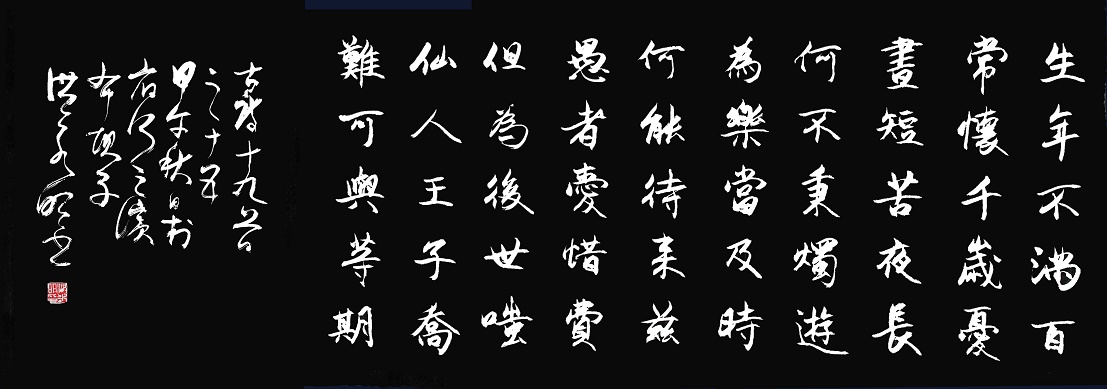 生年不滿百
常懷千歲憂
晝短苦夜長
何不秉燭遊
為樂當及時
何能待来茲
愚者愛惜費
但為後世嗤
仙人王子喬
難可與等期
古詩十九首
之十五
甲午秋日於
之濱